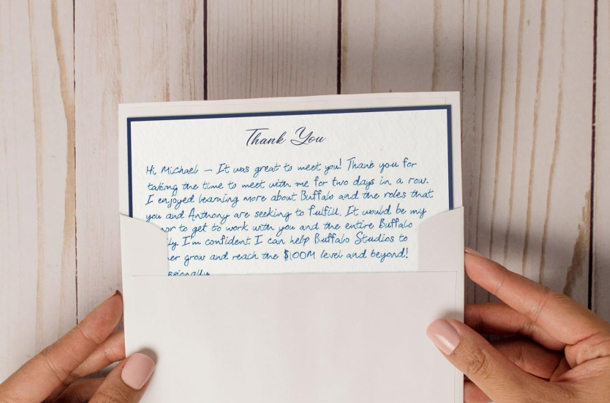 Thank You
Hi Michael – It was great to meet you! Thank you for
taking the time to meet with me for two days in a row.
I enjoyed learning more about Buffalo and the roles that
you and Anthony are seeking to fulfill. It would be my
to get to work with you and the entire Buffalo
I'm confident I can help Buffalo Studios to
grow and reach the $100M level and beyond!